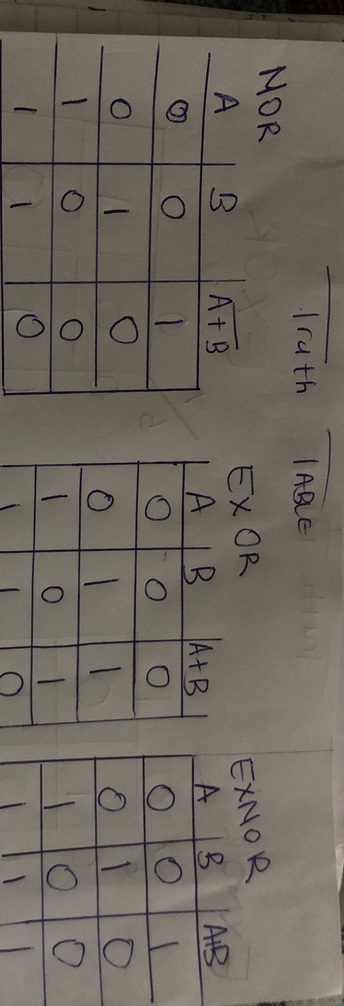 Truth TABLE
NOR
A B A+B
0 0 1
0 1 0
1 0 0
1 1 0
EXOR
A B A+B
0 0 0
0 1 1
1 0 1
1 1 0
EXNOR
A B A+B
0 0 1
0 1 0
1 0 0
1 1 1